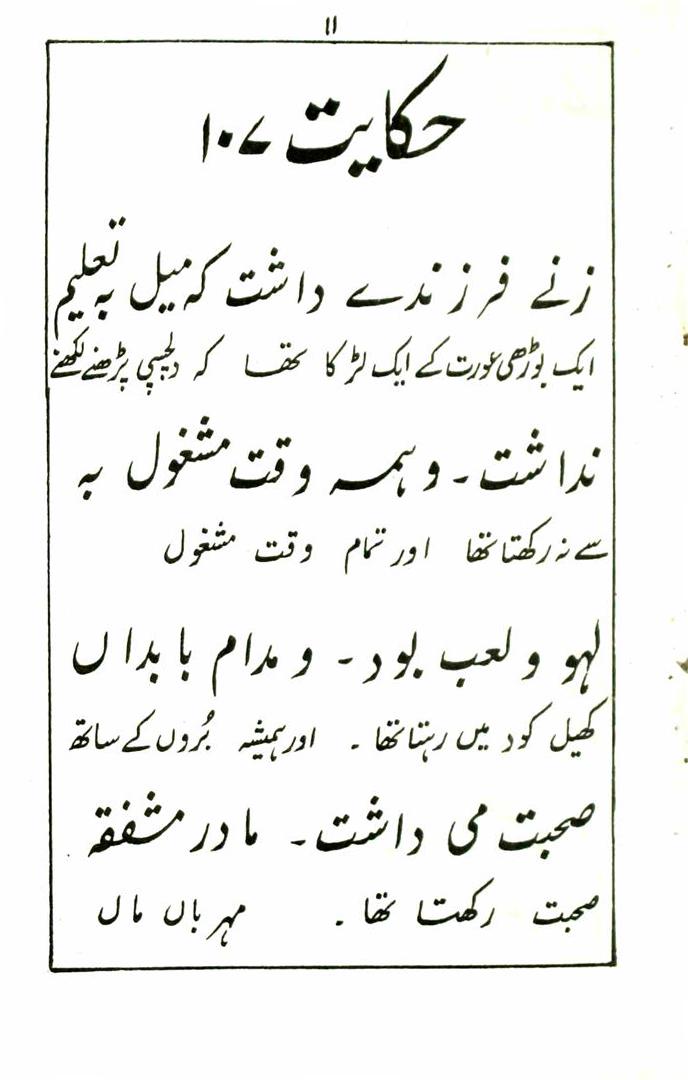 ۱۱
حکایت ۱۰۷
زنے فرزندے داشت کہ میل بہ تعلیم
ایک بوڑھی عورت کے ایک لڑکا تھا کہ دلچسپی پڑھنے لکھنے
نداشت۔ و ہمہ وقت مشغول بہ
سے نہ رکھتا تھا اور تمام وقت مشغول
لہو و لعب بود۔ و مدام با بداں
کھیل کود میں رہتا تھا۔ اور ہمیشہ بُروں کے ساتھ
صحبت می داشت۔ مادر مشفقہ
صحبت رکھتا تھا۔ مہرباں ماں